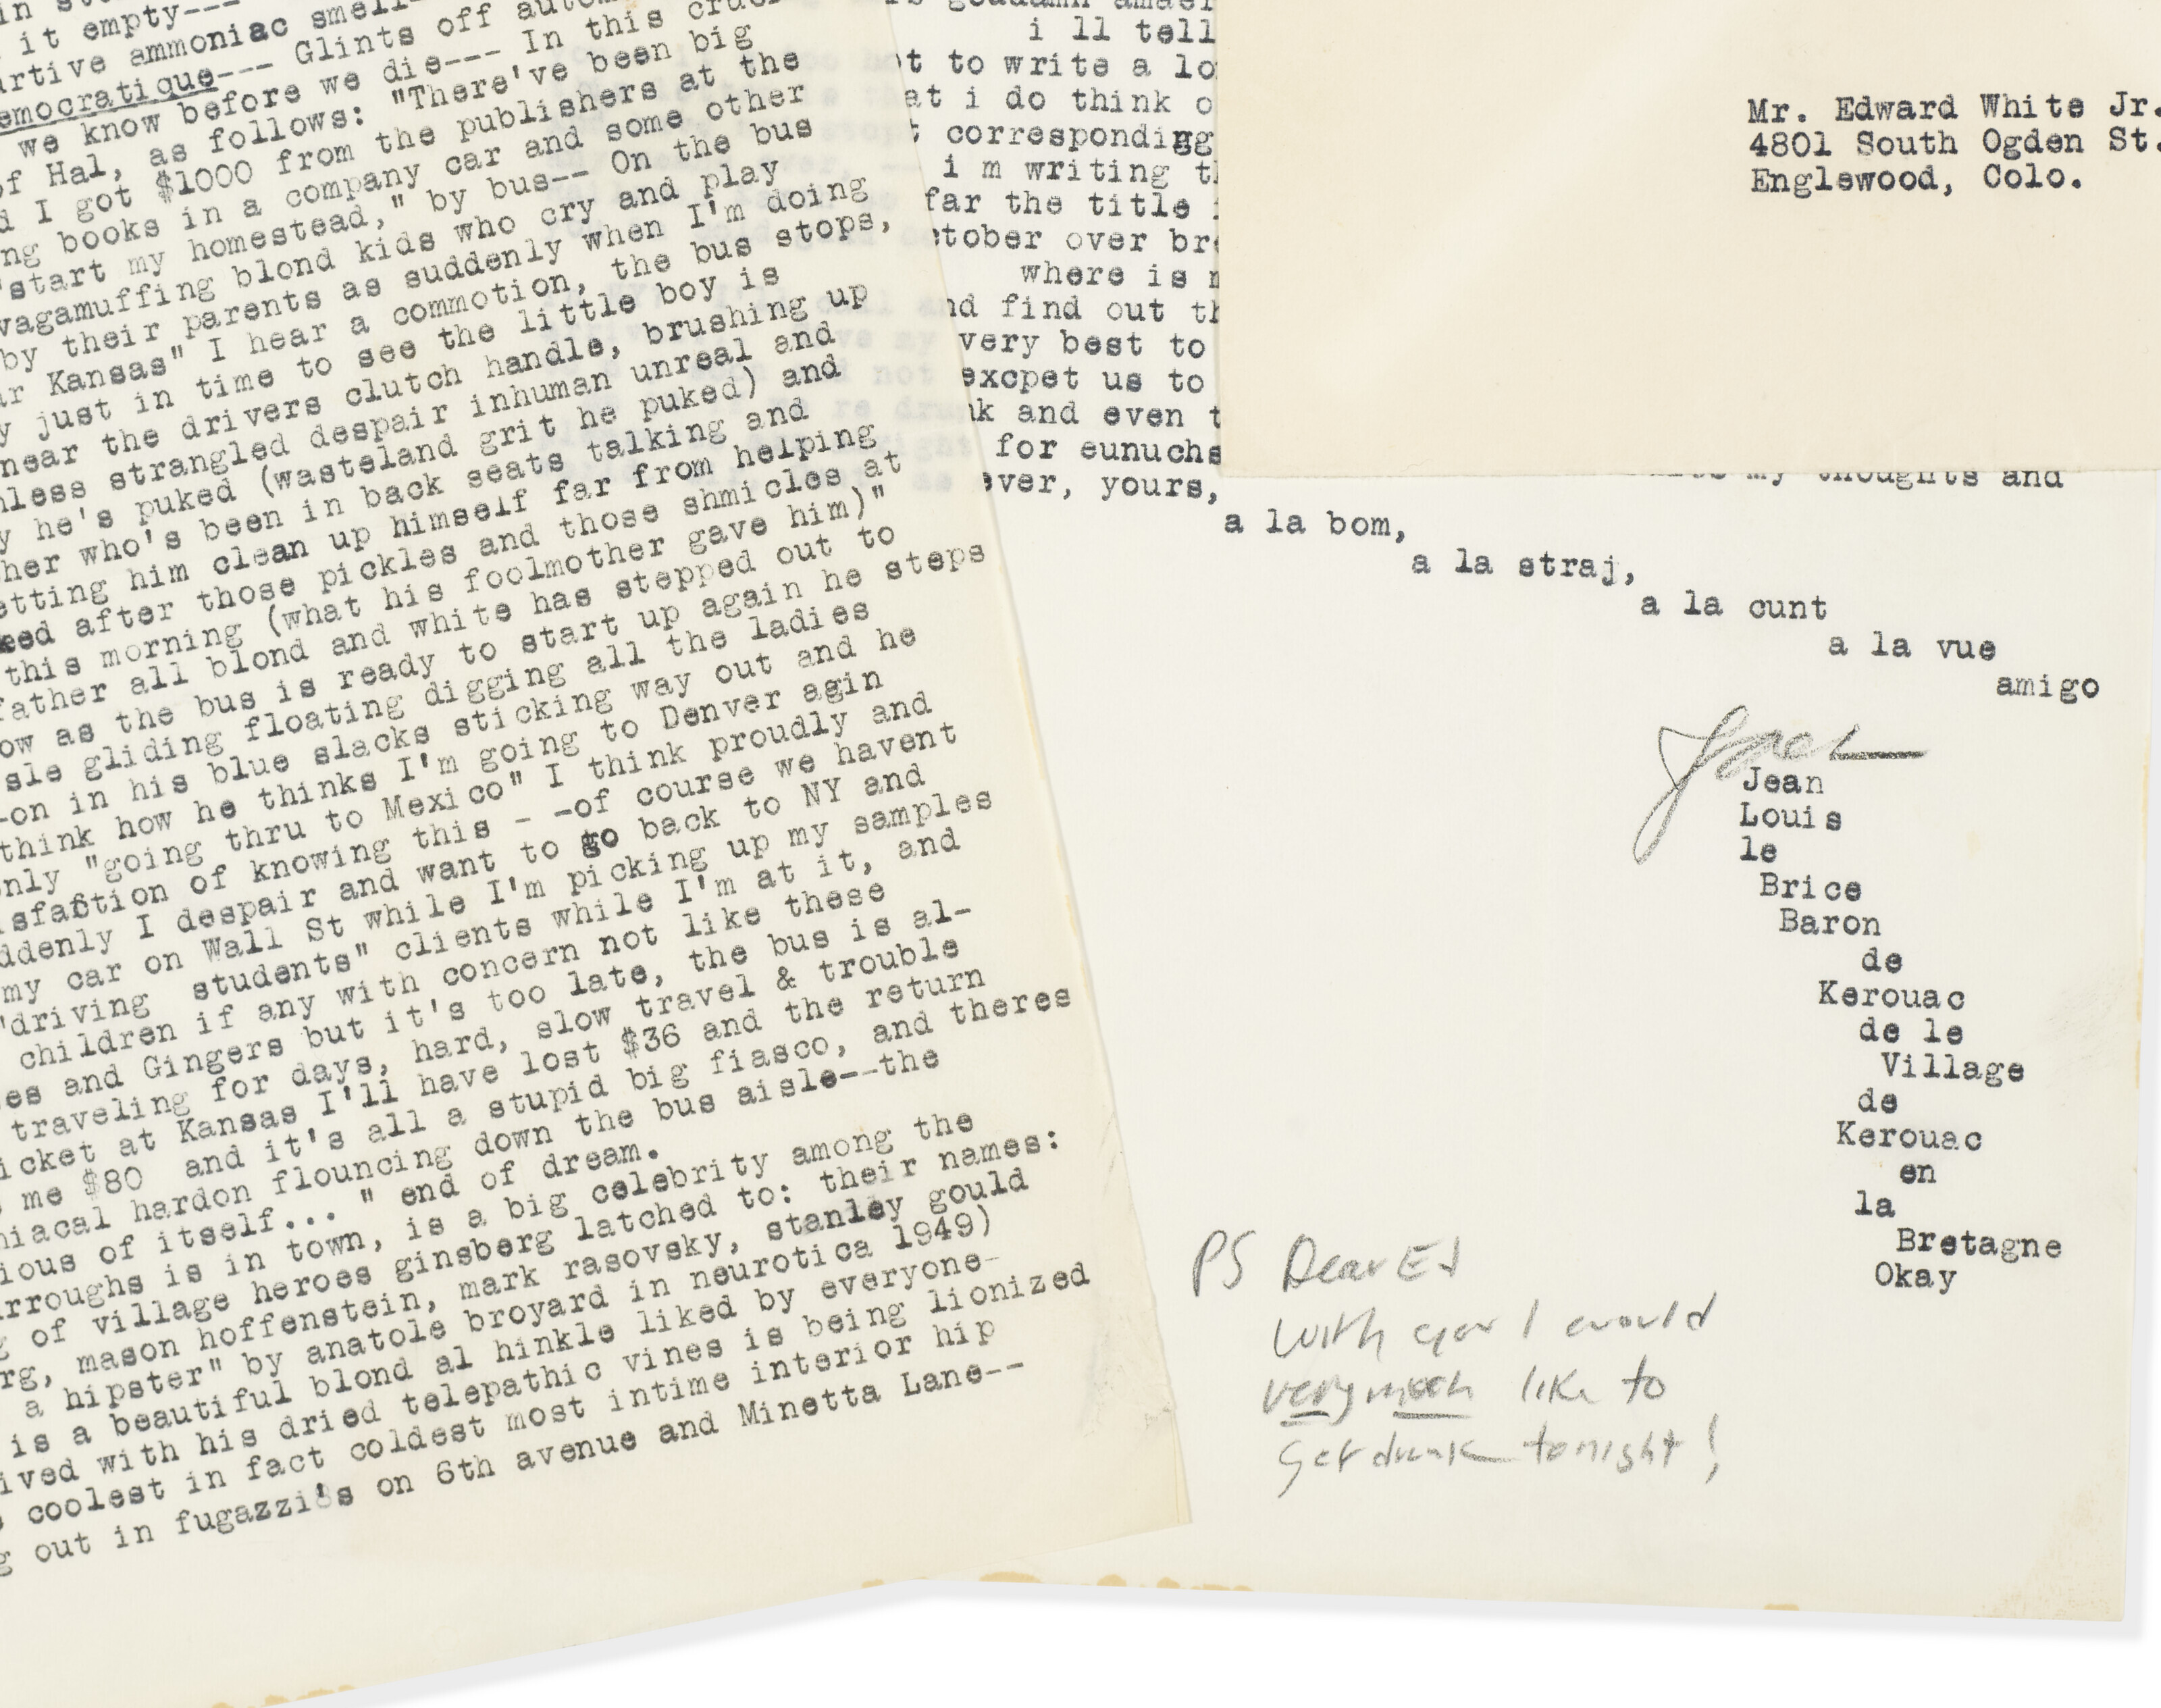 it empty---
ammoniac
emocratique--- Glints off
we know before we die--- In this
of Hal, as follows: "There've been big
I got $1000 from the publishers at the
ng books in a company car and some other
"start my homestead," by bus-- On the bus
vagamuffing blond kids who cry and play
by their parents as suddenly when I'm doing
Kansas" I hear a commotion, the bus stops,
just in time to see the little boy is
near the drivers clutch handle, brushing up
nless strangled despair inhuman unreal and
y he's puked (wasteland grit he puked) and
her who's been in back seats talking and
etting him clean up himself far from helping
ked after those pickles and those shmicles at
this morning (what his foolmother gave him)"
father all blond and white has stepped out to
ow as the bus is ready to start up again he steps
sle gliding floating digging all the ladies
-on in his blue slacks sticking way out and he
think how he thinks I'm going to Denver agin
nly "going thru to Mexico" I think proudly and
isfaction of knowing this - -of course we havent
ddenly I despair and want to go back to NY and
my car on Wall St while I'm picking up my samples
"driving students" clients while I'm at it, and
children if any with concern not like these
es and Gingers but it's too late, the bus is al-
traveling for days, hard, slow travel & trouble
icket at Kansas I'll have lost $36 and the return
me $80 and it's all a stupid big fiasco, and theres
niacal hardon flouncing down the bus aisle---the
ious of itself... " end of dream.
rroughs is in town, is a big celebrity among the
g of village heroes ginsberg latched to: their names:
rg, mason hoffenstein, mark rasovsky, stanley gould
a hipster" by anatole broyard in neurotica 1949)
is a beautiful blond al hinkle liked by everyone-
ived with his dried telepathic vines is being lionized
coolest in fact coldest most intime interior hip
g out in fugazzi's on 6th avenue and Minetta Lane--
i ll tell
t to write a lo
at i do think o
t correspondigg
i m writing t
far the title
ctober over br
where is
nd find out th
very best to
excpet us to
nk and even t
for eunuchs
ever, yours,
my thoughts and
a la bom,
a la straj,
a la cunt
a la vue
amigo
Jean
Louis
le
Brice
Baron
de
Kerouac
de le
Village
de
Kerouac
en
la
Bretagne
Okay
PS Dear Ed
With you I would
very much like to
get drunk tonight!
Mr. Edward White Jr.
4801 South Ogden St.
Englewood, Colo.